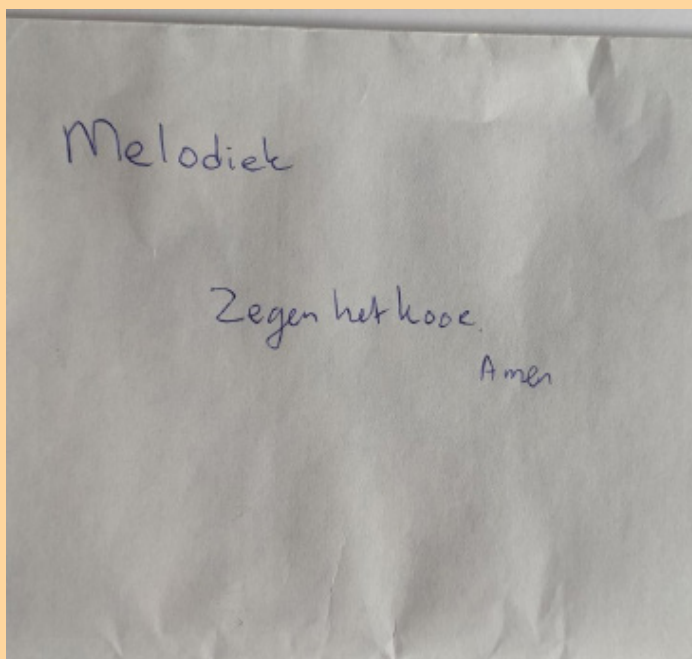 Melodiek
Zegen het kooc.
Amen